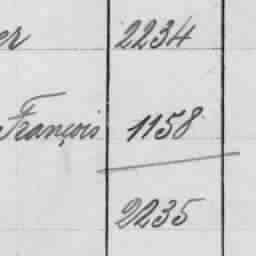 er 2234
François 1158
2235